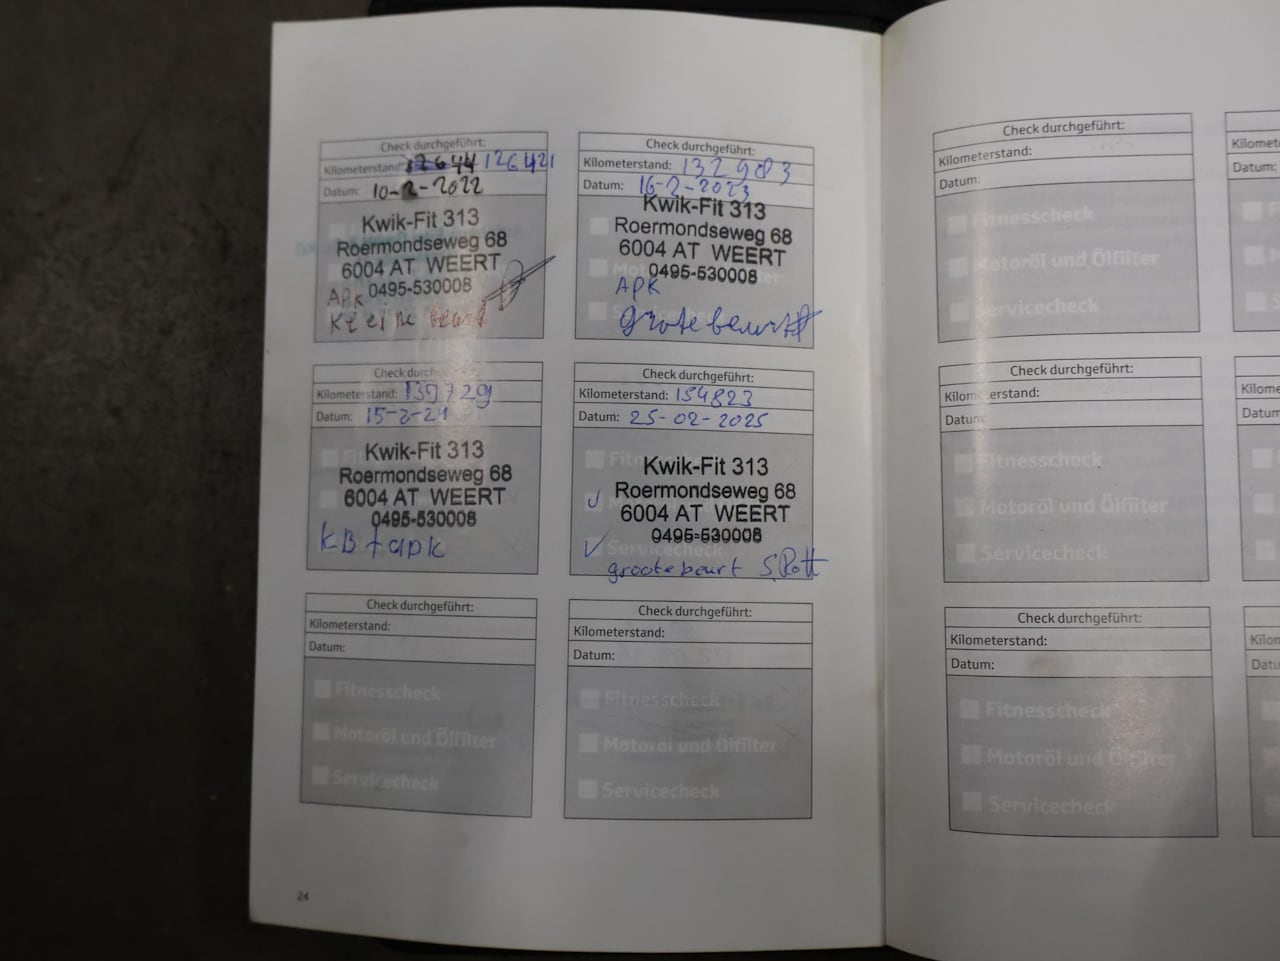 Check durchgeführt:
Kilometerstand: 126421
Datum: 10-2-2022
Kwik-Fit 313
Roermondseweg 68
6004 AT WEERT
0495-530008
APK
Kleine beurt
Check durchgeführt:
Kilometerstand: 132983
Datum: 16-2-2023
Kwik-Fit 313
Roermondseweg 68
6004 AT WEERT
0495-530008
APK
Grote beurt
Check durchgeführt:
Kilometerstand: 139729
Datum: 15-2-24
Kwik-Fit 313
Roermondseweg 68
6004 AT WEERT
0495-530008
KB + apk
Check durchgeführt:
Kilometerstand: 154823
Datum: 25-02-2025
Kwik-Fit 313
Roermondseweg 68
6004 AT WEERT
0495-530008
Servicecheck
grootebeurt
Check durchgeführt:
Kilometerstand:
Datum:
Fitnesscheck
Motoröl und Ölfilter
Servicecheck
Check durchgeführt:
Kilometerstand:
Datum:
Fitnesscheck
Motoröl und Ölfilter
Servicecheck
24
Check durchgeführt:
Kilometerstand:
Datum:
Fitnesscheck
Motoröl und Ölfilter
Servicecheck
Check durchgeführt:
Kilometerstand:
Datum:
Fitnesscheck
Motoröl und Ölfilter
Servicecheck
Check durchgeführt:
Kilometerstand:
Datum:
Fitnesscheck
Motoröl und Ölfilter
Servicecheck